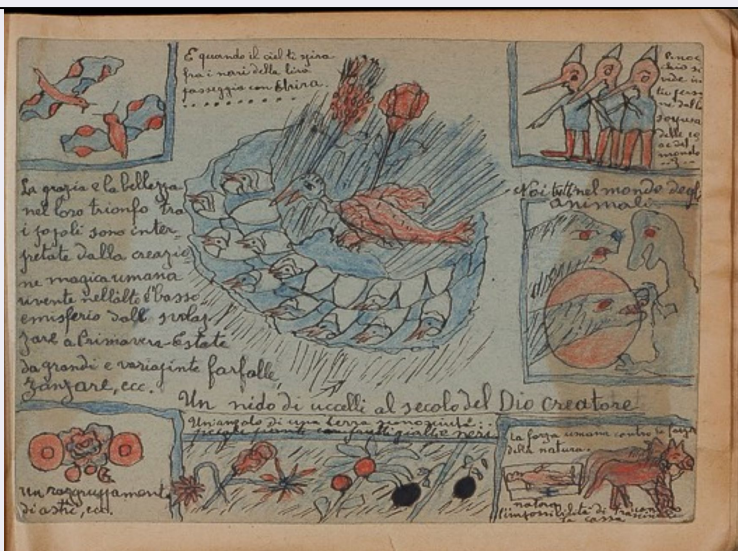 E quando il ciel ti spira
fra i nari della lira
passeggio con Elvira.
Pinoc
chio si
nde in
tre perso
ne dalla
delle
del
mondo
La grazia e la bellezza
nel loro trionfo tra
i popoli sono inter-
pretate dalla creazio
ne magica umana
vivente nell'alto e basso
emisferio dallo svolaz
zare a Primavera-Estate
da grandi e variopinte farfalle,
zanzare, ecc.
Noi tutti nel mondo degli
animali
Un nido di uccelli al secolo del Dio creatore
Un angolo di una terra sconosciuta:
piccole piante con frutti gialli e neri
un raggruppamento
di astri, ecc.
La forza umana contro la forza
della natura.
l'impossibilità di trascinare
la cassa